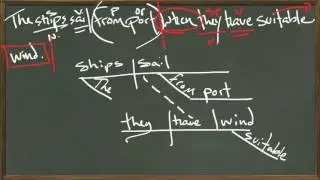 s v p op
The ships sail (from port) when they have suitable
wind.
ships sail
The from port
they have wind
suitable